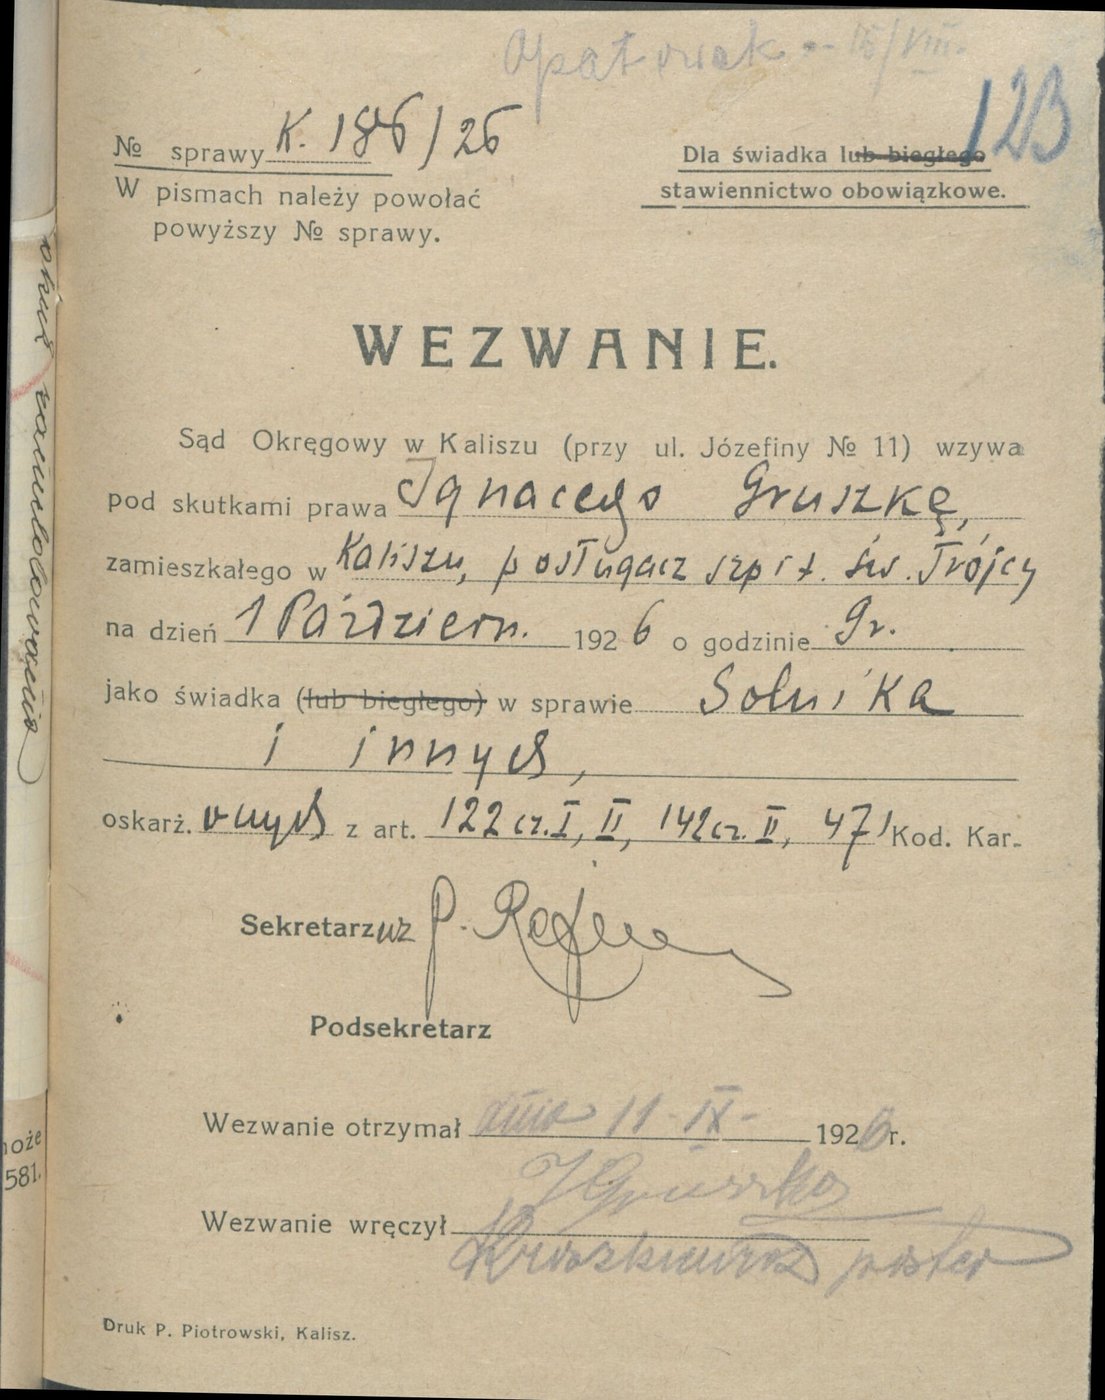 Opatówek - 15/VIII.
123
№ sprawy K. 186/26
W pismach należy powołać
powyższy № sprawy.
Dla świadka lub biegłego
stawiennictwo obowiązkowe.
WEZWANIE.
Sąd Okręgowy w Kaliszu (przy ul. Józefiny № 11) wzywa
pod skutkami prawa Ignacego Gruszkę,
zamieszkałego w Kaliszu, posługacz szpit. św. Trójcy
na dzień 1 Październ. 1926 o godzinie 9 r.
jako świadka (lub biegłego) w sprawie Solnika
i innych,
oskarż. onych z art. 122 cz. I, II, 142 cz. II, 471 Kod. Kar.
Sekretarz wz P.
Podsekretarz
Wezwanie otrzymał dnia 11-IX- 1926 r.
I Gruszka
Wezwanie wręczył
Kruszkiewicz poster
Druk P. Piotrowski, Kalisz.
oże
581.